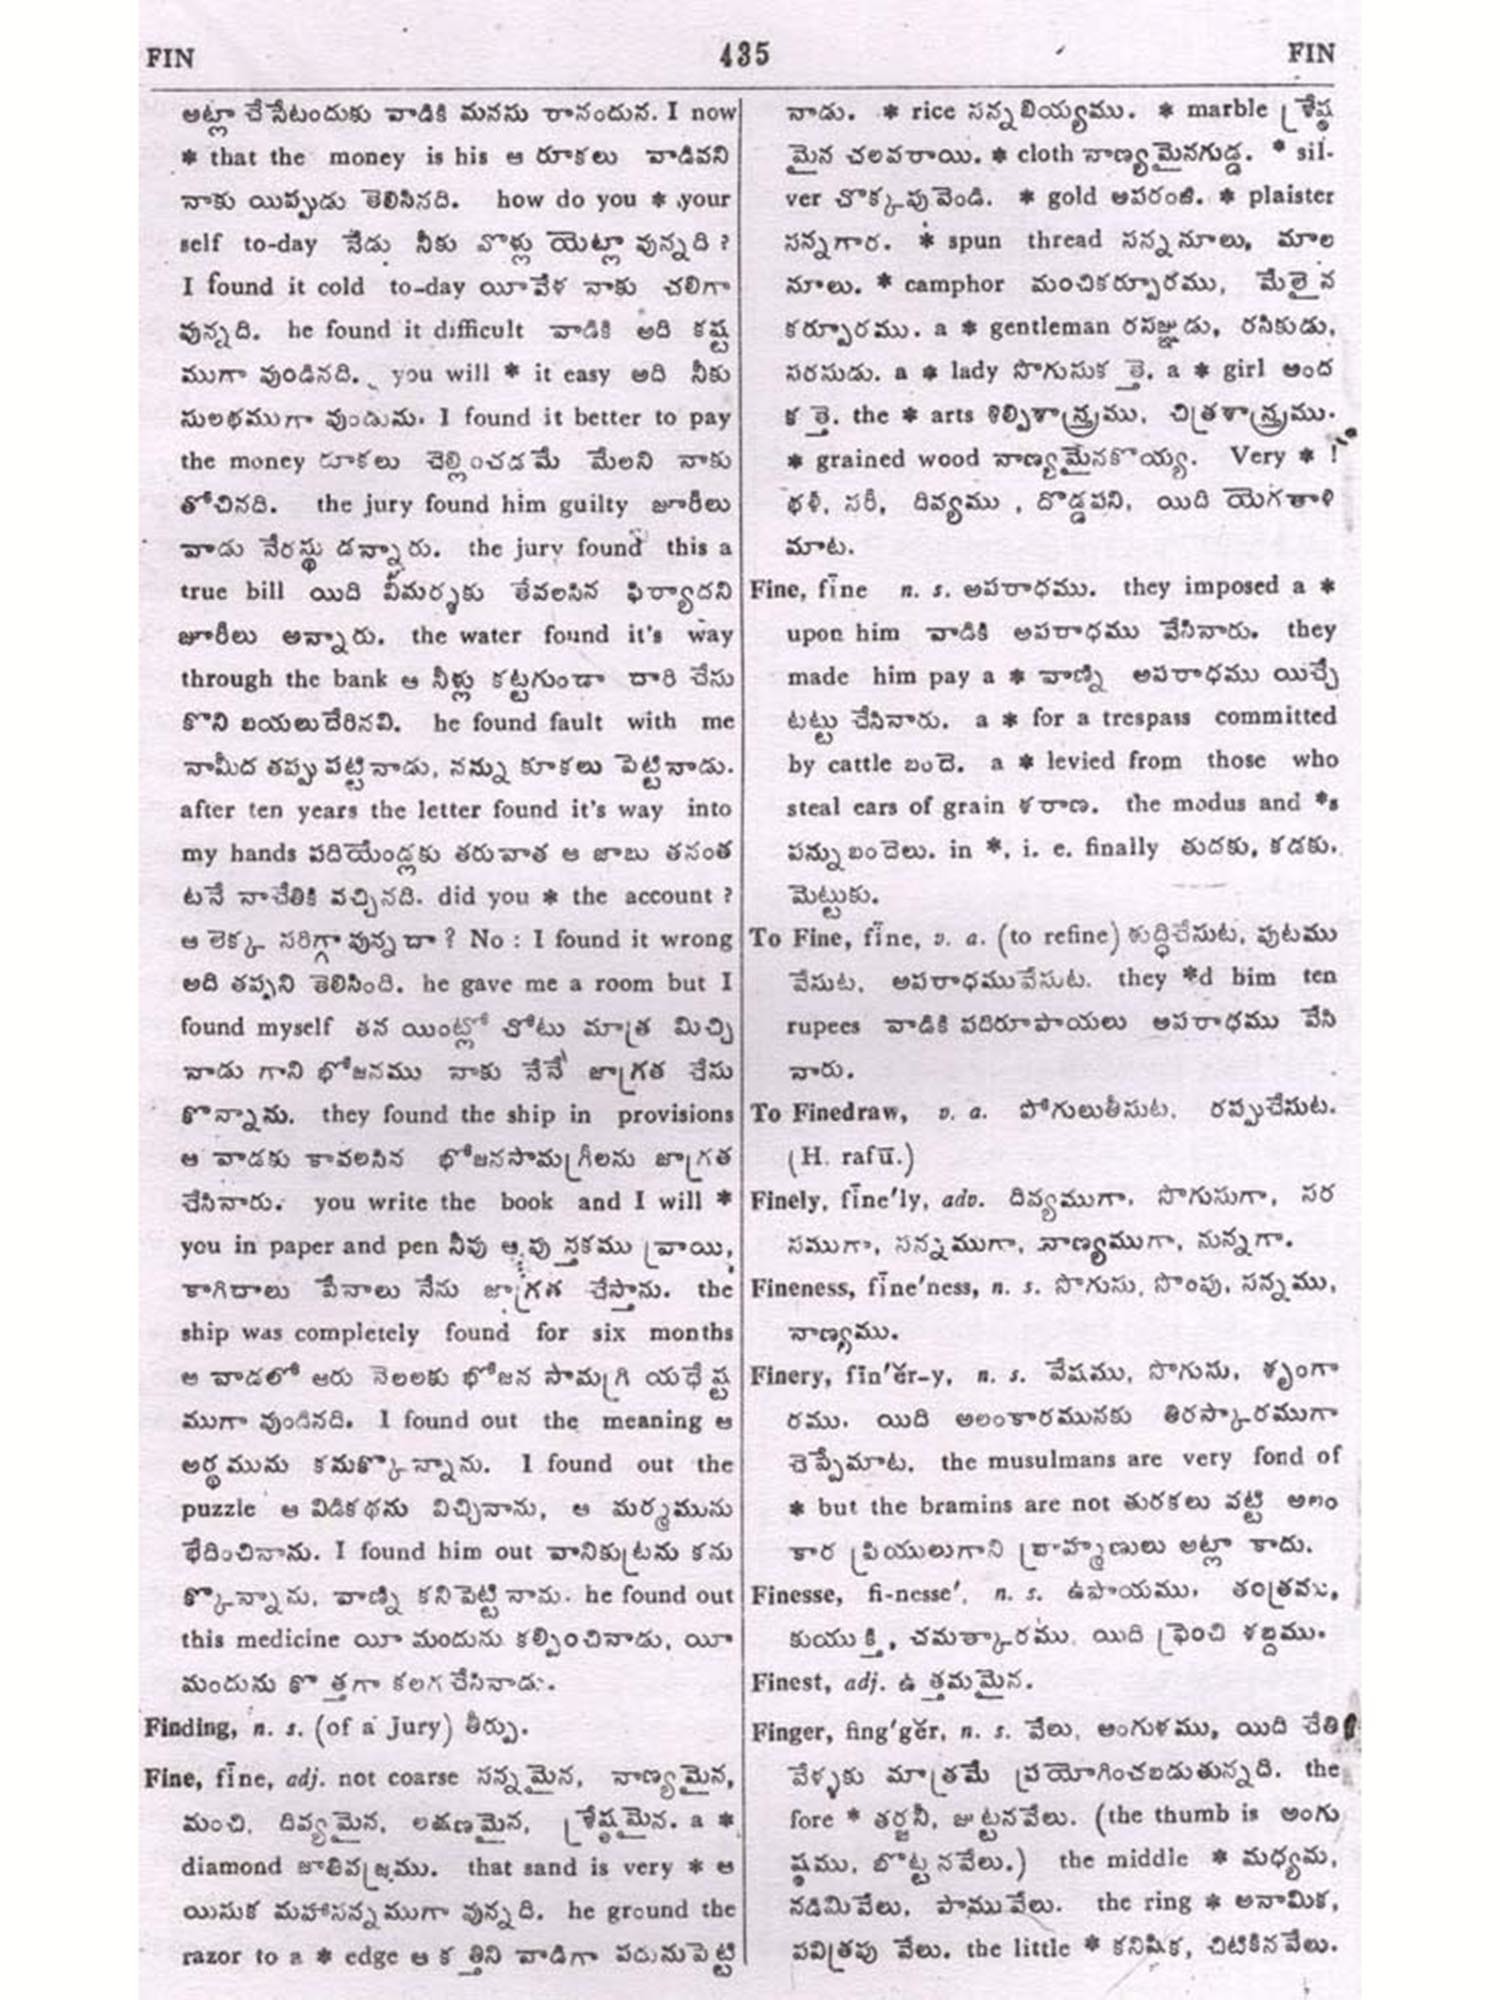 FIN 435 FIN
అట్లా చేసేటందుకు వాడికి మనసు రానందున. I now
* that the money is his ఆ రూకలు వాడివని
నాకు యిప్పుడు తెలిసినది. how do you * your
self to-day నేడు నీకు వొళ్లు యెట్లా వున్నది ?
I found it cold to-day యీవేళ నాకు చలిగా
వున్నది. he found it difficult వాడికి అది కష్ట
ముగా వుండినది. you will * it easy అది నీకు
సులభముగా వుండును. I found it better to pay
the money రూకలు చెల్లించడమే మేలని నాకు
తోచినది. the jury found him guilty జూరీలు
వాడు నేరస్థుడన్నారు. the jury found this a
true bill యిది విమర్శకు తేవలసిన ఫిర్యాదని
జూరీలు అన్నారు. the water found it's way
through the bank ఆ నీళ్లు కట్టగుండా దారి చేసు
కొని బయలుదేరినవి. he found fault with me
నామీద తప్పు పట్టినాడు, నన్ను కూకలు పెట్టినాడు.
after ten years the letter found it's way into
my hands పదియేండ్లకు తరువాత ఆ జాబు తనంత
టనే నాచేతికి వచ్చినది. did you * the account ?
ఆ లెక్క సరిగ్గావున్నదా ? No : I found it wrong
అది తప్పని తెలిసింది. he gave me a room but I
found myself తన యింట్లో చోటు మాత్ర మిచ్చి
నాడు గాని భోజనము నాకు నేనే జాగ్రత చేసు
కొన్నాను. they found the ship in provisions
ఆ వాడకు కావలసిన భోజనసామగ్రీలను జాగ్రత
చేసినారు. you write the book and I will *
you in paper and pen నీవు ఆ పుస్తకము వ్రాయి,
కాగిదాలు పేనాలు నేను జాగ్రత చేస్తాను. the
ship was completely found for six months
ఆ వాడలో ఆరు నెలలకు భోజన సామగ్రి యధేష్ట
ముగా వుండినది. I found out the meaning ఆ
అర్థమును కనుక్కొన్నాను. I found out the
puzzle ఆ విడికథను విచ్చినాను, ఆ మర్మమును
భేదించినాను. I found him out వానికుట్రను కను
క్కొన్నాను, వాణ్ని కనిపెట్టినాను. he found out
this medicine యీ మందును కల్పించినాడు, యీ
మందును కొత్తగా కలగచేసినాడు.
Finding, n. s. (of a Jury) తీర్పు.
Fine, fīne, adj. not coarse సన్నమైన, నాణ్యమైన,
మంచి, దివ్యమైన, లక్షణమైన, శ్రేష్ఠమైన. a *
diamond జాతివజ్రము. that sand is very * ఆ
యిసుక మహాసన్నముగా వున్నది. he ground the
razor to a * edge ఆ కత్తిని వాడిగా పదునుపెట్టి
నాడు. * rice సన్నబియ్యము. * marble శ్రేష్ఠ
మైన చలవరాయి. * cloth నాణ్యమైనగుడ్డ. * sil-
ver చొక్కపువెండి. * gold అపరంజి. * plaister
సన్నగార. * spun thread సన్ననూలు, మాల
నూలు. * camphor మంచికర్పూరము, మేలైన
కర్పూరము. a * gentleman రసజ్ఞుడు, రసికుడు,
సరసుడు. a * lady సొగుసుకత్తె. a * girl అంద
కత్తె. the * arts శిల్పిశాస్త్రము, చిత్రశాస్త్రము.
* grained wood నాణ్యమైనకొయ్య. Very * !
భళీ, సరీ, దివ్యము, దొడ్డపని, యిది యెగతాళి
మాట.
Fine, fīne n. s. అపరాధము. they imposed a *
upon him వాడికి అపరాధము వేసినారు. they
made him pay a * వాణ్ని అపరాధము యిచ్చే
టట్టు చేసినారు. a * for a trespass committed
by cattle బందె. a * levied from those who
steal ears of grain శరాణ. the modus and *s
పన్నుబందెలు. in *, i. e. finally తుదకు, కడకు,
మెట్టుకు.
To Fine, fīne, v. a. (to refine) శుద్ధిచేసుట, పుటము
వేసుట, అపరాధమువేసుట. they *d him ten
rupees వాడికి పదిరూపాయలు అపరాధము వేసి
నారు.
To Finedraw, v. a. పోగులుతీసుట, రప్పుచేసుట.
(H. rafū.)
Finely, fīne'ly, adv. దివ్యముగా, సొగుసుగా, సర
సముగా, సన్నముగా, నాణ్యముగా, నున్నగా.
Fineness, fīne'ness, n. s. సొగుసు, సొంపు, సన్నము,
నాణ్యము.
Finery, fīn'ĕr-y, n. s. వేషము, సొగుసు, శృంగా
రము. యిది అలంకారమునకు తిరస్కారముగా
చెప్పేమాట. the musulmans are very fond of
* but the bramins are not తురకలు వట్టి అలం
కార ప్రియులుగాని బ్రాహ్మణులు అట్లా కాదు.
Finesse, fi-nesse', n. s. ఉపాయము, తంత్రము,
కుయుక్తి, చమత్కారము, యిది ఫ్రెంచి శబ్దము.
Finest, adj. ఉత్తమమైన.
Finger, fing'gĕr, n. s. వేలు, అంగుళము, యిది చేతి
వేళ్ళకు మాత్రమే ప్రయోగించబడుతున్నది. the
fore * తర్జనీ, జుట్టనవేలు. (the thumb is అంగు
ష్ఠము, బొట్టనవేలు.) the middle * మధ్యమ,
నడిమివేలు, పామువేలు. the ring * అనామిక,
పవిత్రపు వేలు. the little * కనిషిక, చిటికినవేలు.